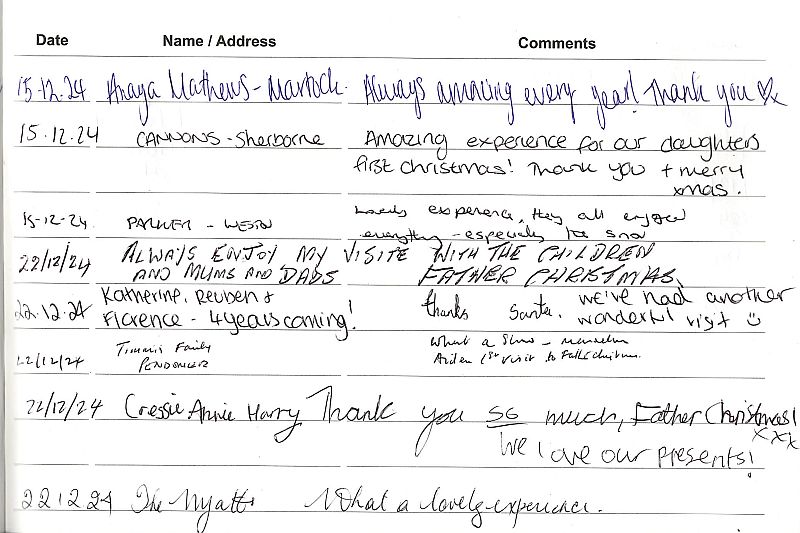 Date Name / Address Comments
15.12.24 Anaya Mathews - Martock. Always amazing every year! Thank you x
15.12.24 CANNONS - Sherborne Amazing experience for our daughters
first christmas! Thank you + merry
xmas.
15-12-24 PARKER - WESTON Lovely experience, they all enjoyed
everything - especially the snow
22/12/24 ALWAYS ENJOY MY VISITE WITH THE CHILDREN
AND MUMS AND DADS FATHER CHRISTMAS.
22.12.24 Katherine, Reuben &
Florence - 4 years coming! thanks Santa. we've had another
wonderful visit ☺
22/12/24 Timmis Family What a Show -
PENDOMER 1st visit to Father Christmas.
22/12/24 Cressie Annie Harry Thank you so much, Father Christmas!
xxx
We love our presents!
22.12.24 The Nyatts What a lovely experience.